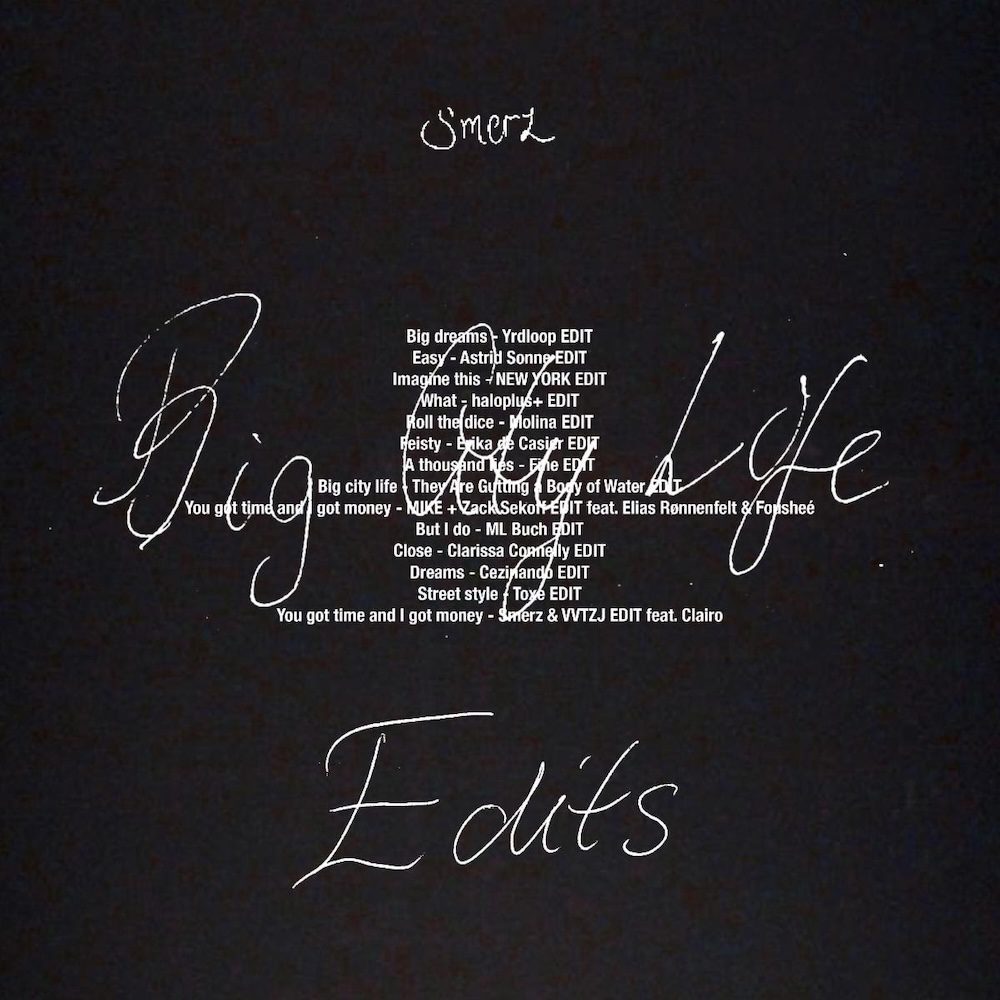 Smerz
Big City Life
Big dreams - Yrdloop EDIT
Easy - Astrid Sonne EDIT
Imagine this - NEW YORK EDIT
What - haloplus+ EDIT
Roll the dice - Molina EDIT
Feisty - Erika de Casier EDIT
A thousand lies - Fine EDIT
Big city life - They Are Gutting a Body of Water EDIT
You got time and I got money - MIKE + Zack Sekoff EDIT feat. Elias Rønnenfelt & Fousheé
But I do - ML Buch EDIT
Close - Clarissa Connelly EDIT
Dreams - Cezinando EDIT
Street style - Toxe EDIT
You got time and I got money - Smerz & VVTZJ EDIT feat. Clairo
Edits